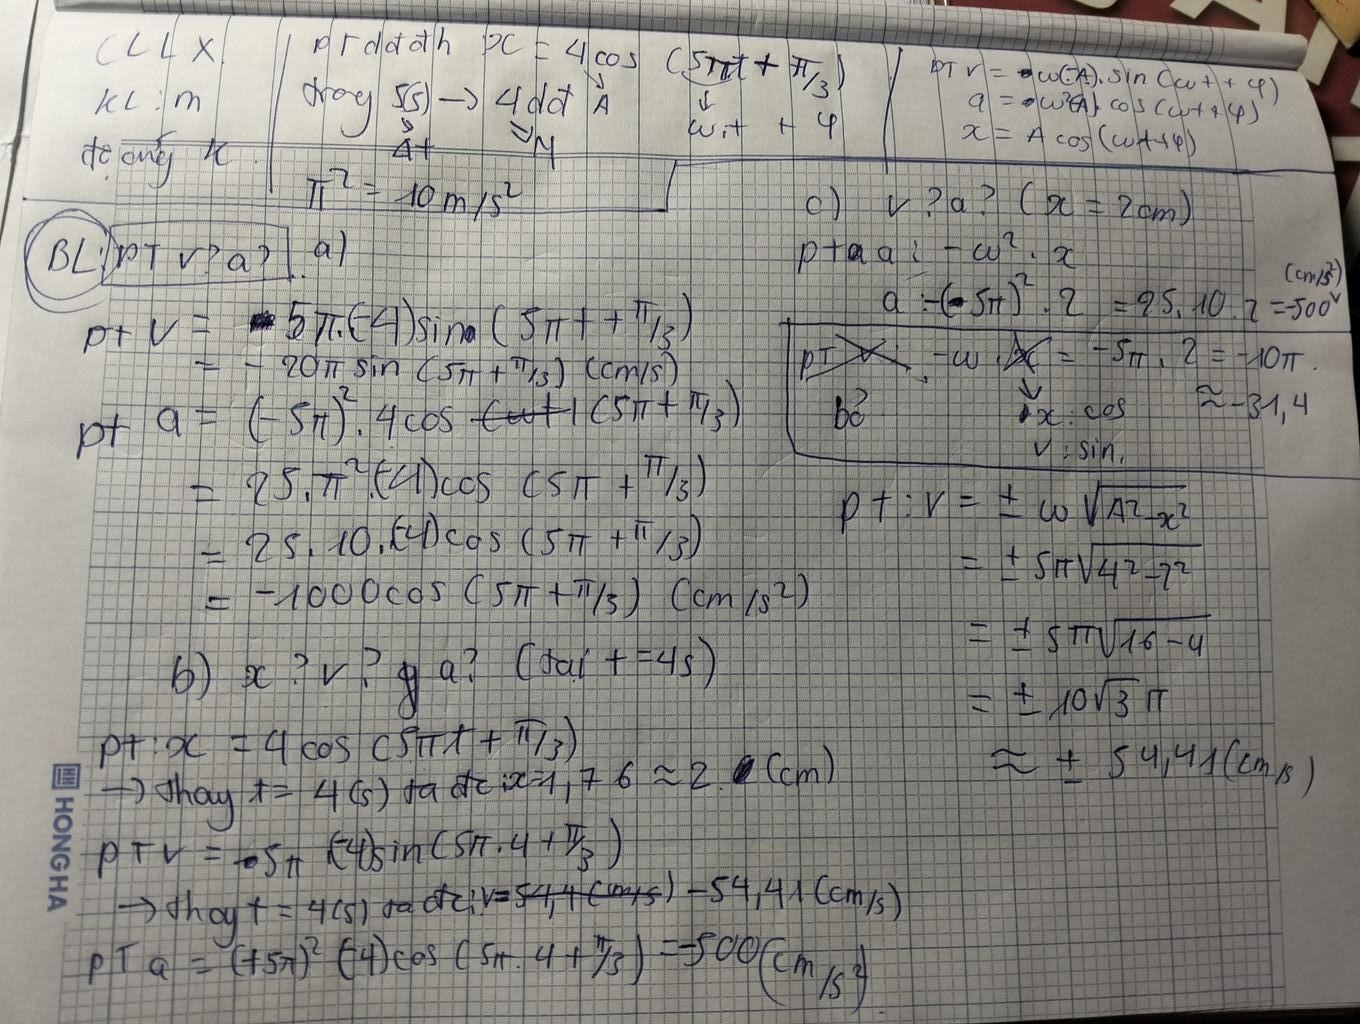 CLLX
KL: m
độ cứng K
pt dđđh x = 4cos (5πt + π/3)
A
trong 5(s) → 4 dđ
ω.t + φ
Δt N
π² = 10 m/s²
PT v = ω(-A).sin(ωt + φ)
a = ω²(-A) cos(ωt+φ)
x = A cos(ωt+φ)
BL: PT v? a? a)
pt v = 5π.(-4)sin(5πt + π/3)
= - 20π sin (5π + π/3) (cm/s)
pt a = (-5π)². 4cos (5π + π/3)
= 25.π².(-4)cos (5π + π/3)
= 25.10.(-4)cos (5π + π/3)
= -1000cos (5π + π/3) (cm/s²)
b) x? v? a? (tại t = 4s)
pt: x = 4 cos (5πt + π/3)
→ thay t = 4(s) ta đc: x=1,76 ≈ 2 (cm)
PT v = 5π (-4)sin(5π.4 + π/3)
→ thay t = 4(s) ta đc: v= 54,4 (cm/s) -54,41 (cm/s)
PT a = (+5π)² (-4)cos (5π.4 + π/3) = -500 (cm/s²)
c) v? a? (x = 2cm)
pt a: -ω².x
a: -(5π)².2 = 25.10.2 = -500 (cm/s²)
PT v: -ω.x = -5π.2 = -10π.
bỏ x: cos ≈ -31,4
v: sin.
pt: v = ± ω√A²-x²
= ± 5π√4²-2²
= ± 5π√16-4
= ± 10√3 π
≈ ± 54,41 (cm/s)
HONGHA